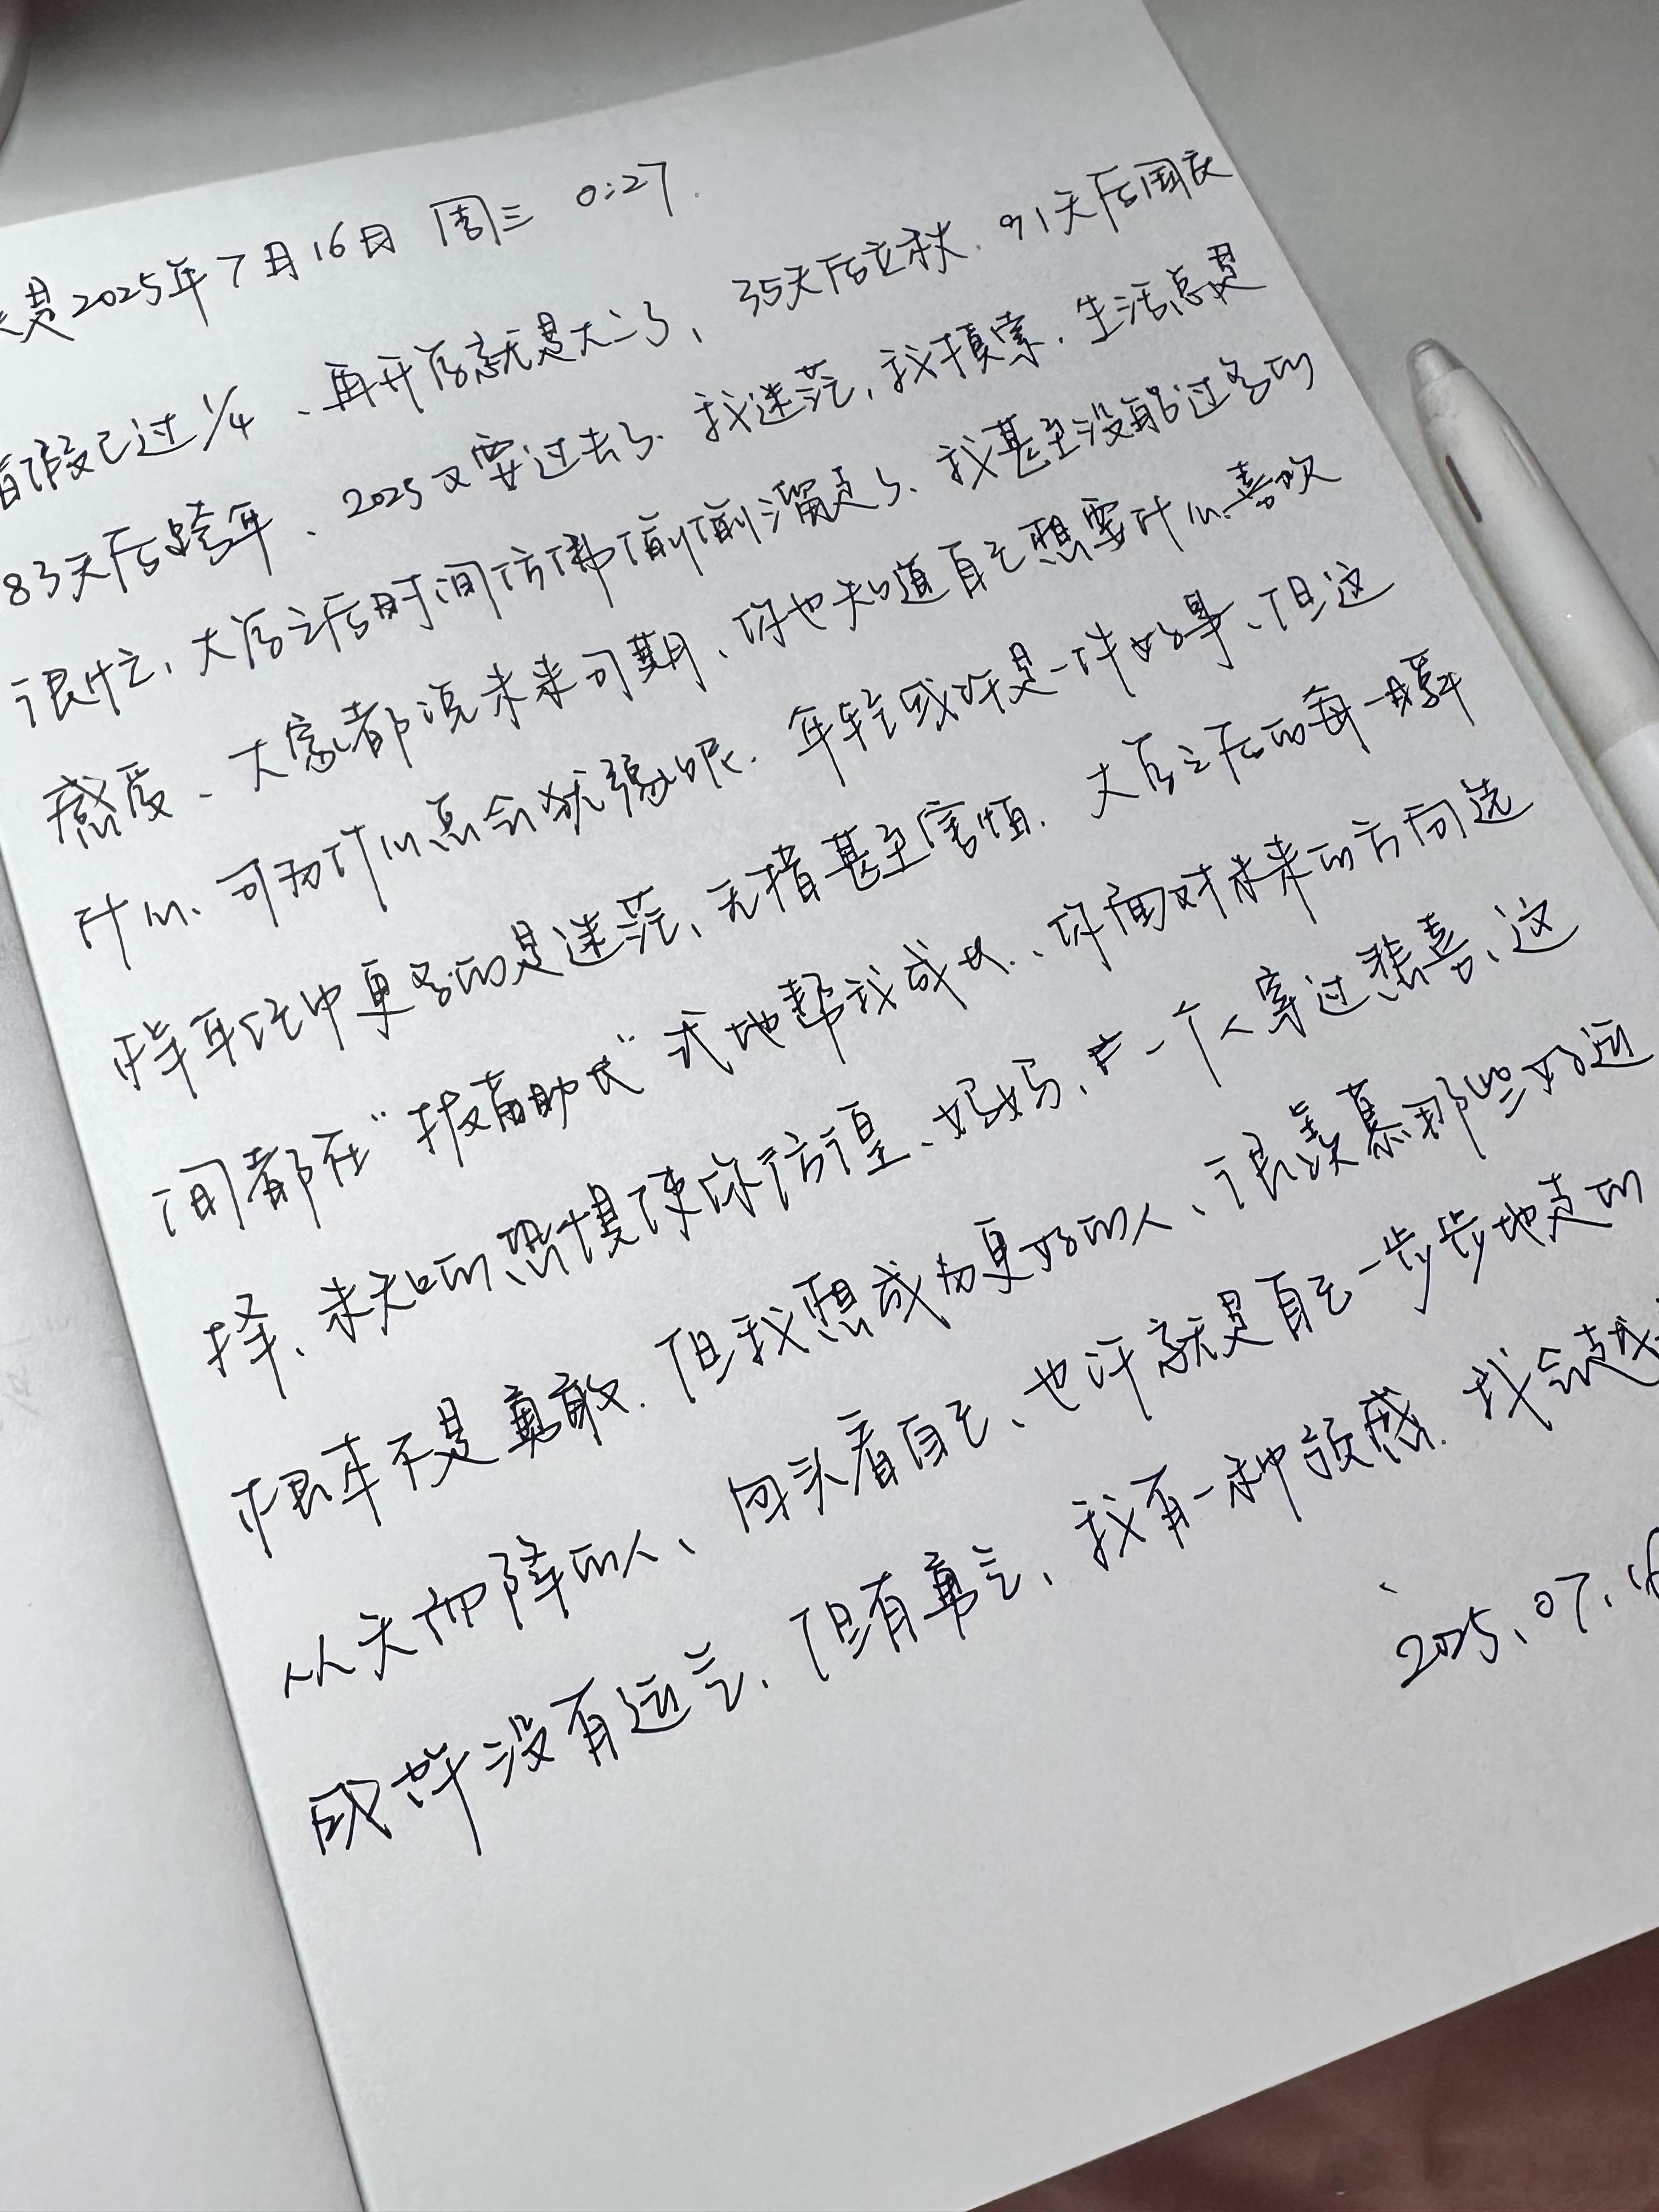 是2025年7月16日 周三 0:27.
假已过1/4、再开学就是大二了、35天后立秋、91天后国庆
83天后跨年、2025又要过去了、我迷茫,我摸索、生活总是
很忙、大学之后时间仿佛悄悄溜走了、我甚至没能过多的
感受、大家都说未来可期、你也知道自己想要什么、喜欢
什么、可为什么总会犹豫呢、年轻或许是一件好事、但这
样年轻中更多的是迷茫、无措甚至害怕、大学之后的每一瞬
间都在“拔苗助长”式地帮我成长、你面对未来的方向选
择、未知的恐惧使你彷徨、妈妈、一个人穿过悲喜、这
根本不是勇敢、但我想成为更好的人、很羡慕那些好运
从天而降的人、回头看自己、也许就是自己一步步地走的
或许没有运气、但有勇气、我有一种预感、我会越
2025、07、